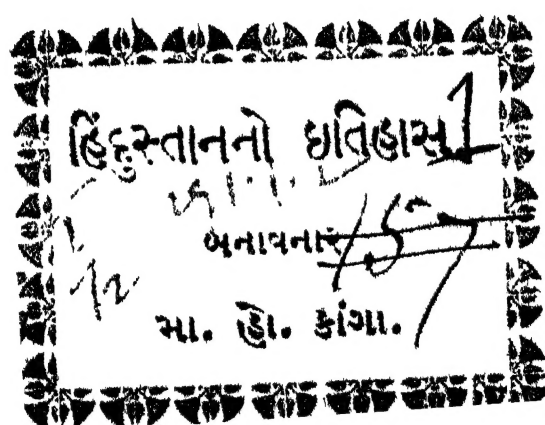 હિંદુસ્તાનનો ઇતિહાસ 1
બનાવનાર
મા. હો. કાંગા.